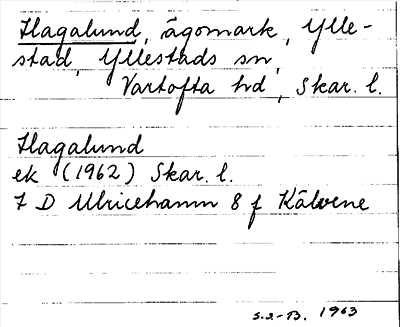 Hagalund, ägomark, Ylle-
stad, Yllestads sn,
Vartofta hd, Skar. l.
Hagalund
ek (1962) Skar. l.
7 D Ulricehamn 8 f Kälvene
S.I.-B. 1963